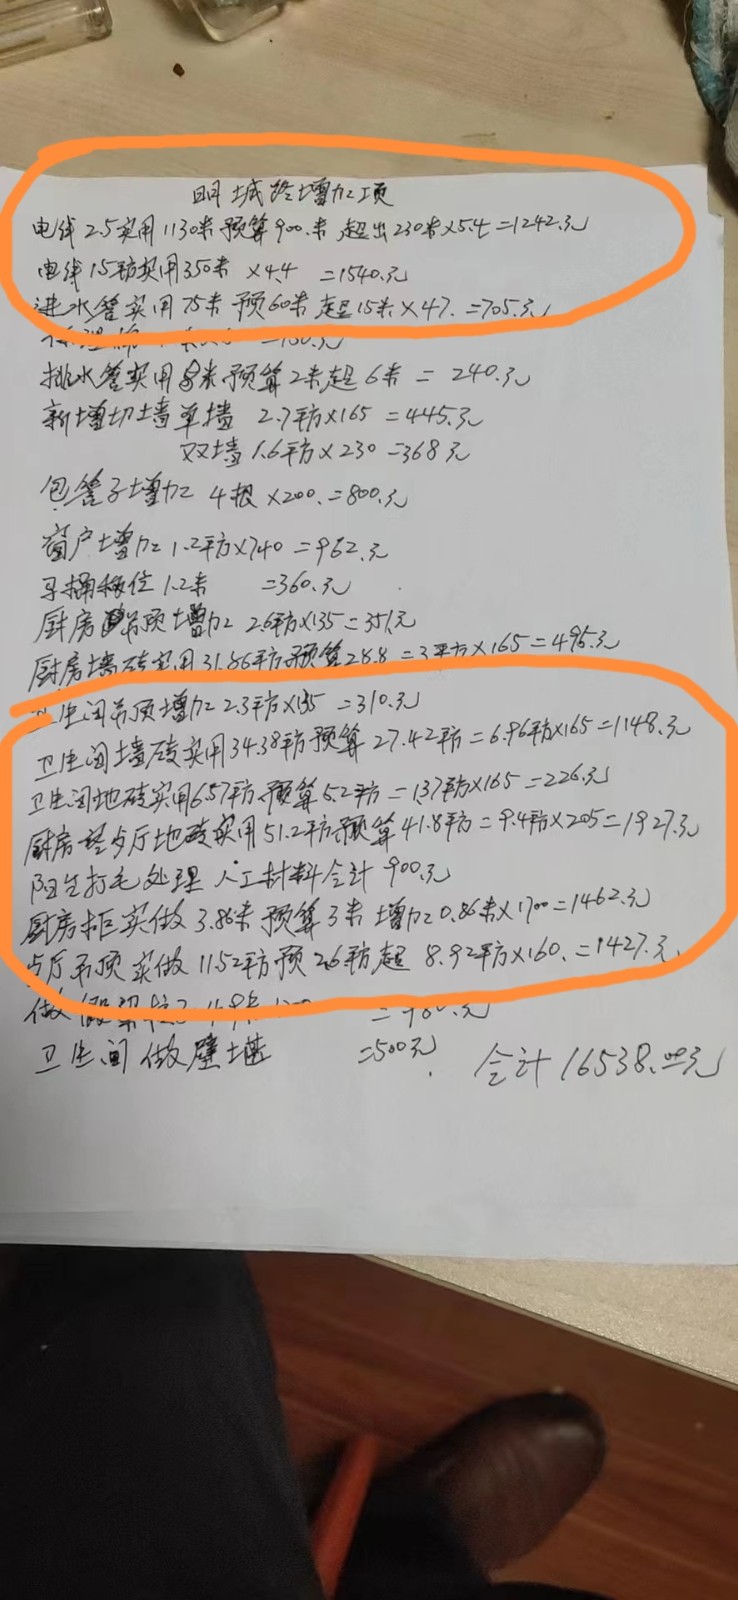 明城给增加项
电线2.5实用1130米预算900.米 超出230米×5.4=1242.元
电线1.5平方实用350米 ×4.4 =1540.元
进水管实用75米 预60米 超15米×47.=705.元
排水管实用8米预算2米超6米 = 240.元
新增切墙单墙 2.7平方×165 =445.元
双墙 1.6平方×230 =368元
包管子增加 4根 ×200.=800.元
窗户增加 1.2平方×740 =962.元
马桶移位1.2米 =360.元
厨房吊顶增加 2.6平方×135=351元
厨房墙砖实用31.86平方预算28.8 =3平方×165=495.元
卫生间吊顶增加 2.3平方×135 =310.元
卫生间墙砖实用34.38平方预算 27.42平方=6.96平方×165=1148.元
卫生间地砖实用6.57平方.预算5.2平方 =1.37平方×165=226.元
厨房 客厅地砖实用51.2平方.预算41.8平方=9.4平方×205=1927.元
阳台打毛处理 人工材料合计 900.元
厨房柜实做 3.86米 预算3米 增加0.86米×1700=1462.元
客厅吊顶实做 11.52平方预2.6平方超 8.92平方×160.=1427.元
做
卫生间做壁龛 =500元
合计16538.00元